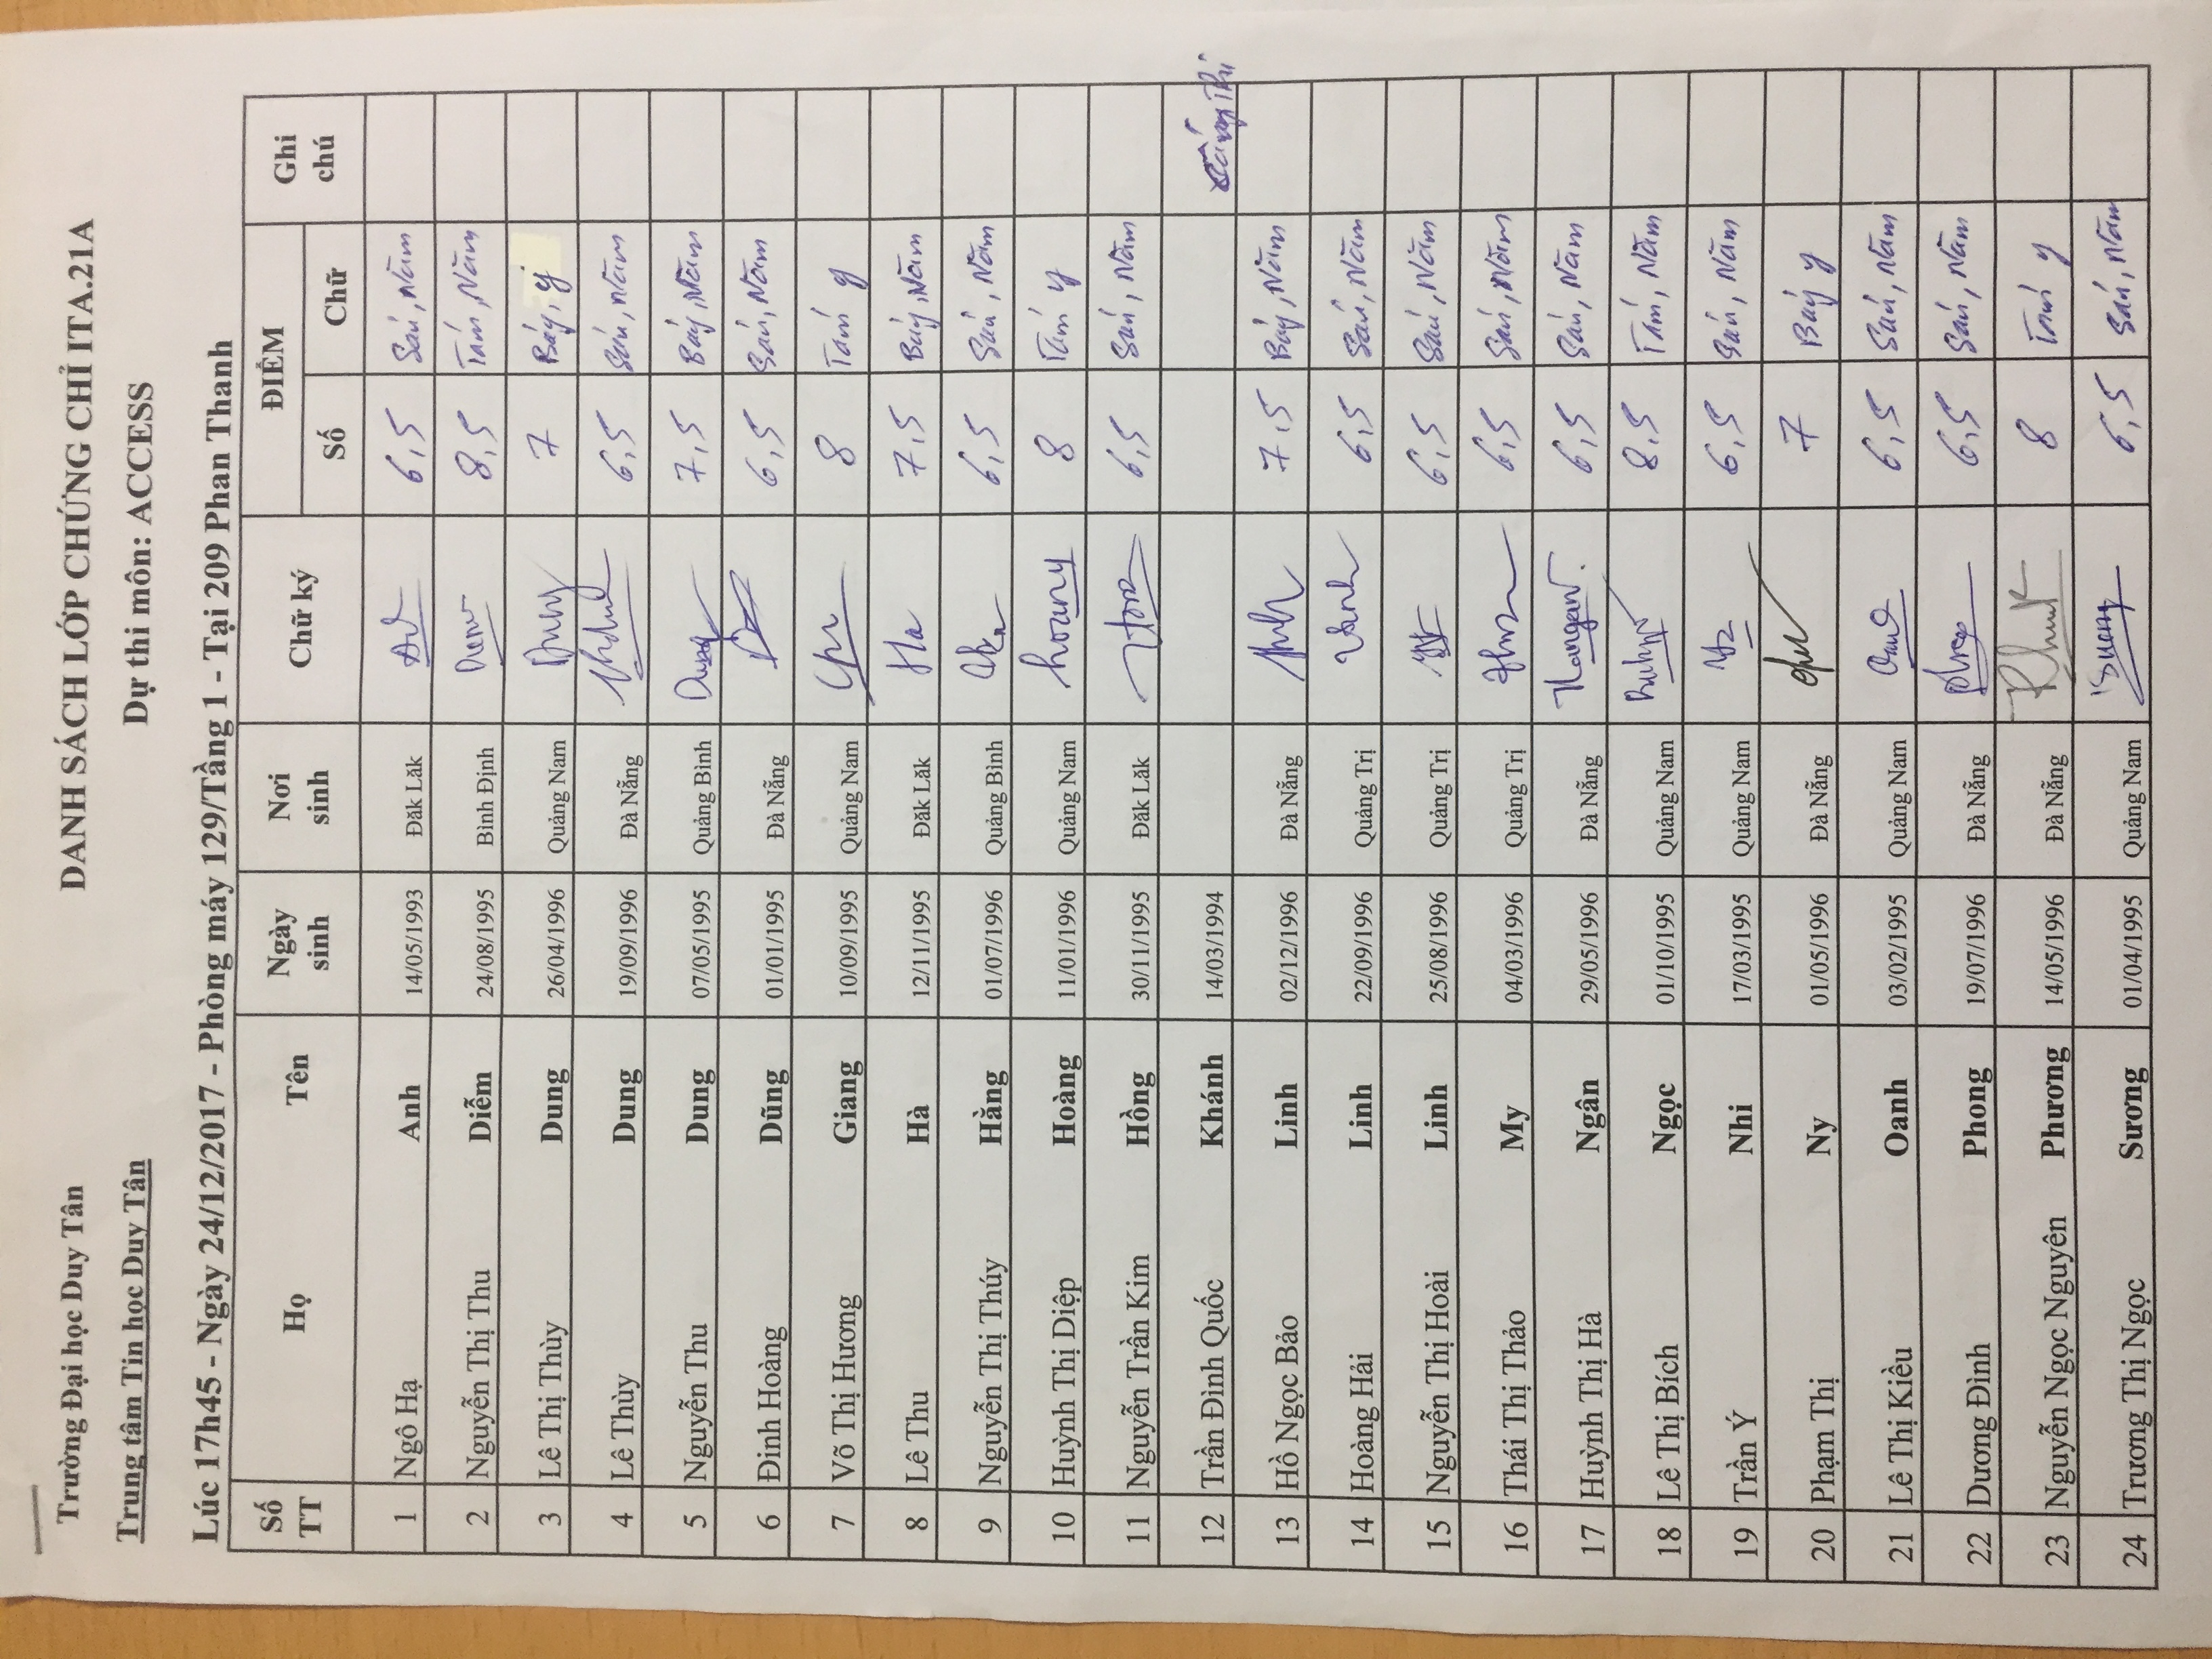 Trường Đại học Duy Tân DANH SÁCH LỚP CHỨNG CHỈ ITA.21A
Trung tâm Tin học Duy Tân Dự thi môn: ACCESS
Lúc 17h45 - Ngày 24/12/2017 - Phòng máy 129/Tầng 1 - Tại 209 Phan Thanh
Số TT Họ Tên Ngày sinh Nơi sinh Chữ ký ĐIỂM Ghi chú
Số Chữ
1 Ngô Hạ Anh 14/05/1993 Đăk Lăk 6,5 Sáu, Năm
2 Nguyễn Thị Thu Diễm 24/08/1995 Bình Định Diễm 8,5 Tám, Năm
3 Lê Thị Thùy Dung 26/04/1996 Quảng Nam Dung 7 Bảy, y
4 Lê Thùy Dung 19/09/1996 Đà Nẵng 6,5 Sáu, Năm
5 Nguyễn Thu Dung 07/05/1995 Quảng Bình Dung 7,5 Bảy, Năm
6 Đinh Hoàng Dũng 01/01/1995 Đà Nẵng 6,5 Sáu, Năm
7 Võ Thị Hương Giang 10/09/1995 Quảng Nam 8 Tám y
8 Lê Thu Hà 12/11/1995 Đăk Lăk Ha 7,5 Bảy, Năm
9 Nguyễn Thị Thúy Hằng 01/07/1996 Quảng Bình 6,5 Sáu, Năm
10 Huỳnh Thị Diệp Hoàng 11/01/1996 Quảng Nam hoang 8 Tám y
11 Nguyễn Trần Kim Hồng 30/11/1995 Đăk Lăk 6,5 Sáu, Năm
12 Trần Đình Quốc Khánh 14/03/1994 Vắng Thi
13 Hồ Ngọc Bảo Linh 02/12/1996 Đà Nẵng 7,5 Bảy, Năm
14 Hoàng Hải Linh 22/09/1996 Quảng Trị 6,5 Sáu, Năm
15 Nguyễn Thị Hoài Linh 25/08/1996 Quảng Trị 6,5 Sáu, Năm
16 Thái Thị Thảo My 04/03/1996 Quảng Trị 6,5 Sáu, Năm
17 Huỳnh Thị Hà Ngân 29/05/1996 Đà Nẵng 6,5 Sáu, Năm
18 Lê Thị Bích Ngọc 01/10/1995 Quảng Nam 8,5 Tám, Năm
19 Trần Ý Nhi 17/03/1995 Quảng Nam 6,5 Sáu, Năm
20 Phạm Thị Ny 01/05/1996 Đà Nẵng 7 Bảy y
21 Lê Thị Kiều Oanh 03/02/1995 Quảng Nam 6,5 Sáu, Năm
22 Dương Đình Phong 19/07/1996 Đà Nẵng 6,5 Sáu, Năm
23 Nguyễn Ngọc Nguyên Phương 14/05/1996 Đà Nẵng 8 Tám y
24 Trương Thị Ngọc Sương 01/04/1995 Quảng Nam 6,5 Sáu, Năm